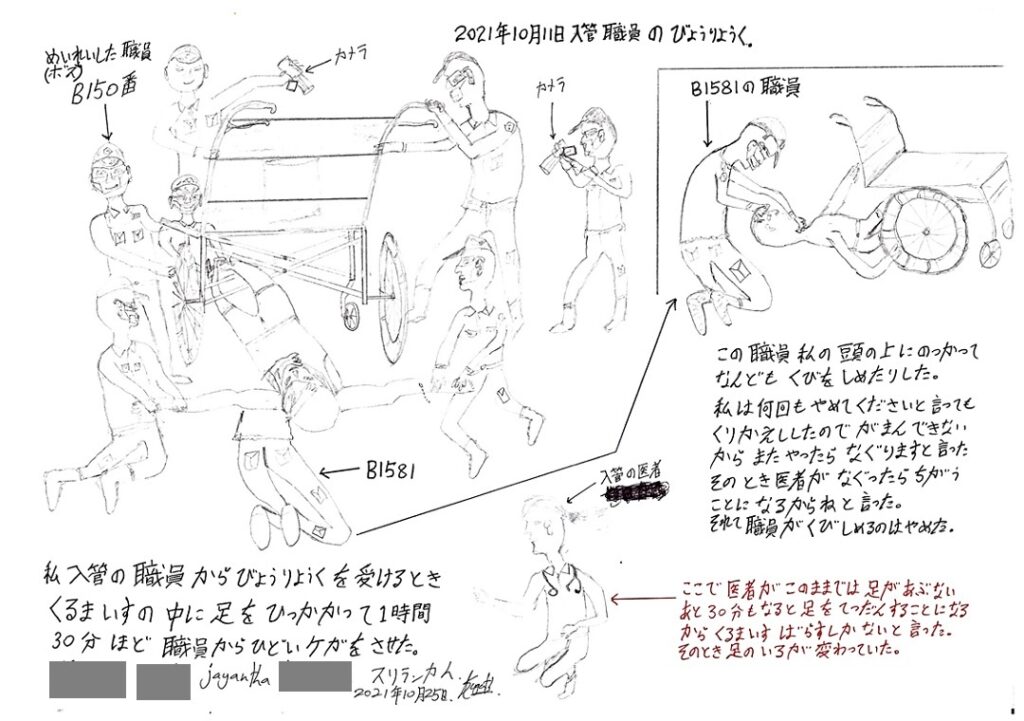 2021年10月11日 入管職員のびょうりようく.
めいれいした職員
(ボス)
B150番
カメラ
カメラ
B1581の職員
この職員私の頭の上にのっかって
なんどもくびをしめたりした。
私は何回もやめてくださいと言っても
くりかえししたのでがまんできない
からまたやったらなぐりますと言った
そのとき医者がなぐったらちがう
ことになるからねと言った。
それで職員がくびしめるのはやめた.
B1581
入管の医者
私入管の職員からびょうりようくを受けるとき
くるまいすの中に足をひっかかって1時間
30分ほど職員からひどいケガをさせた。
jayantha
スリランカ人.
2021年10月25日.
ここで医者がこのままでは足があぶない
あと30分もなると足をてつだんすることになる
からくるまいすばらすしかないと言った。
そのとき足のいろが変わっていた。